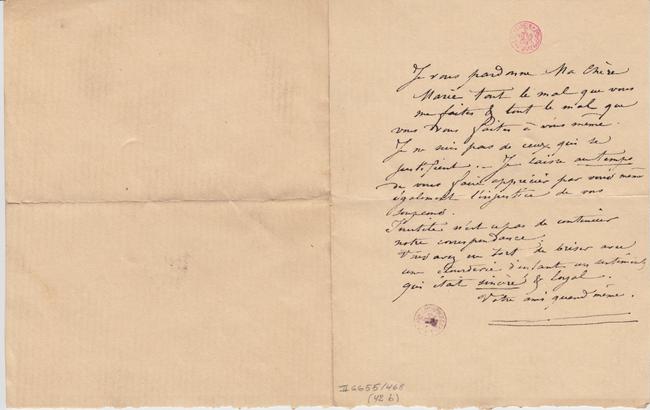 Je vous pardonne Ma Chère
Marie tout le mal que vous
me faites & tout le mal que
vous vous faites à vous même.
Je ne suis pas de ceux qui se
justifient. — Je laisse au temps
de vous faire apprécier par vous même
également l'injustice de vos
soupçons.
Inutile n'est ce pas de continuer
notre correspondance.
Vous avez eu tort de briser avec
une étourderie d'enfant un sentiment
qui était sincère & loyal.
Votre ami quand même.
II 6655/468
(42 b)